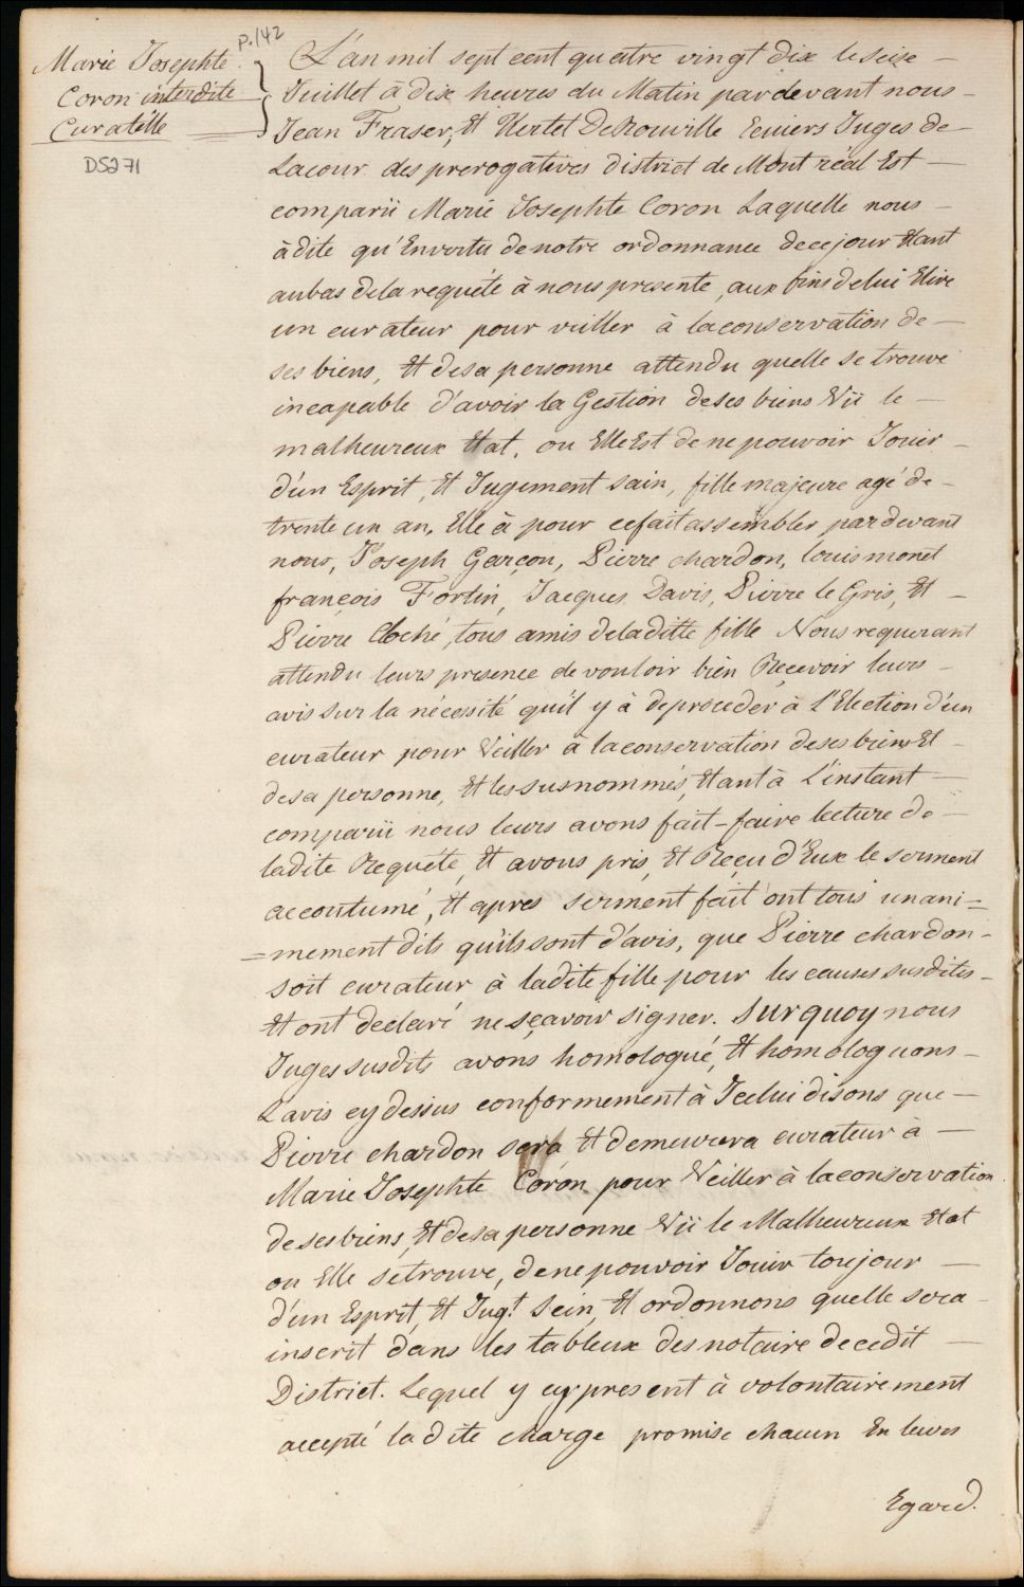 p. 142
Marie Josephte
Coron interdite
Curatélle
DS271
L'an mil sept cent quatre vingt dix le seize —
Juillet à dix heures du Matin pardevant nous —
Jean Fraser, Et Hertel DeRouville Ecuiers Juges de —
Lacour des prerogatives district de Montréal Est —
comparü Marie Josephte Coron Laquelle nous —
à dite qu'Envertu denotre ordonnance decejour Etant
aubas dela requéte à nous presente, aux fins delui Elire
un curateur pour viiller à laconservation de —
ses biens, Et desa personne attendu quelle se trouve
incapable d'avoir la Gestion deses biens Vü le —
malheureux Etat, ou Elle Est de ne pouvoir Jouir —
d'un Esprit, Et Jugement sain, fille majeure agé de —
trente un an, Elle à pour cefait assembler pardevant
nous, Joseph Garçon, Pierre chardon, louis monet
françois Fortin, Jacques Davis, Pierre le Gris, Et —
Pierre Cloché, tous amis deladitte fille Nous requerant
attendu leurs presence de vouloir bien Recevoir leurs —
avis sur la nécessité qu'il y à deproceder à L'Election d'un
curateur pour Veiller à laconservation deses biens Et —
desa personne, Et les susnommés, Etant à L'instant —
comparü nous leurs avons fait-faire lecture de —
ladite Requéte, Et avons pris, Et Reçu d'Eux le serment
accoutumé, Et apres serment fait ont tous unani=
=mement dits qu'ils sont d'avis, que Pierre chardon —
soit curateur à ladite fille pour les causes susdites —
Et ont declaré ne sçavoir signer. Sur quoy nous
Juges susdits avons homologué, Et homologuons —
Lavis cy dessus conformement à Icelui disons que —
Pierre chardon sera Et demeurera curateur à —
Marie Josephte Coron pour Veiller à laconservation
de ses biens, Et desa personne Vü le Malheureux Etat
ou Elle setrouve, dene pouvoir Jouir toujour —
d'un Esprit, Et Jugt. Sein, Et ordonnons quelle sera
inscrit dans les tableux des notaire decedit —
District. Lequel y present à volontairement
accepté ladite charge promise chacun En leurs
Egard.